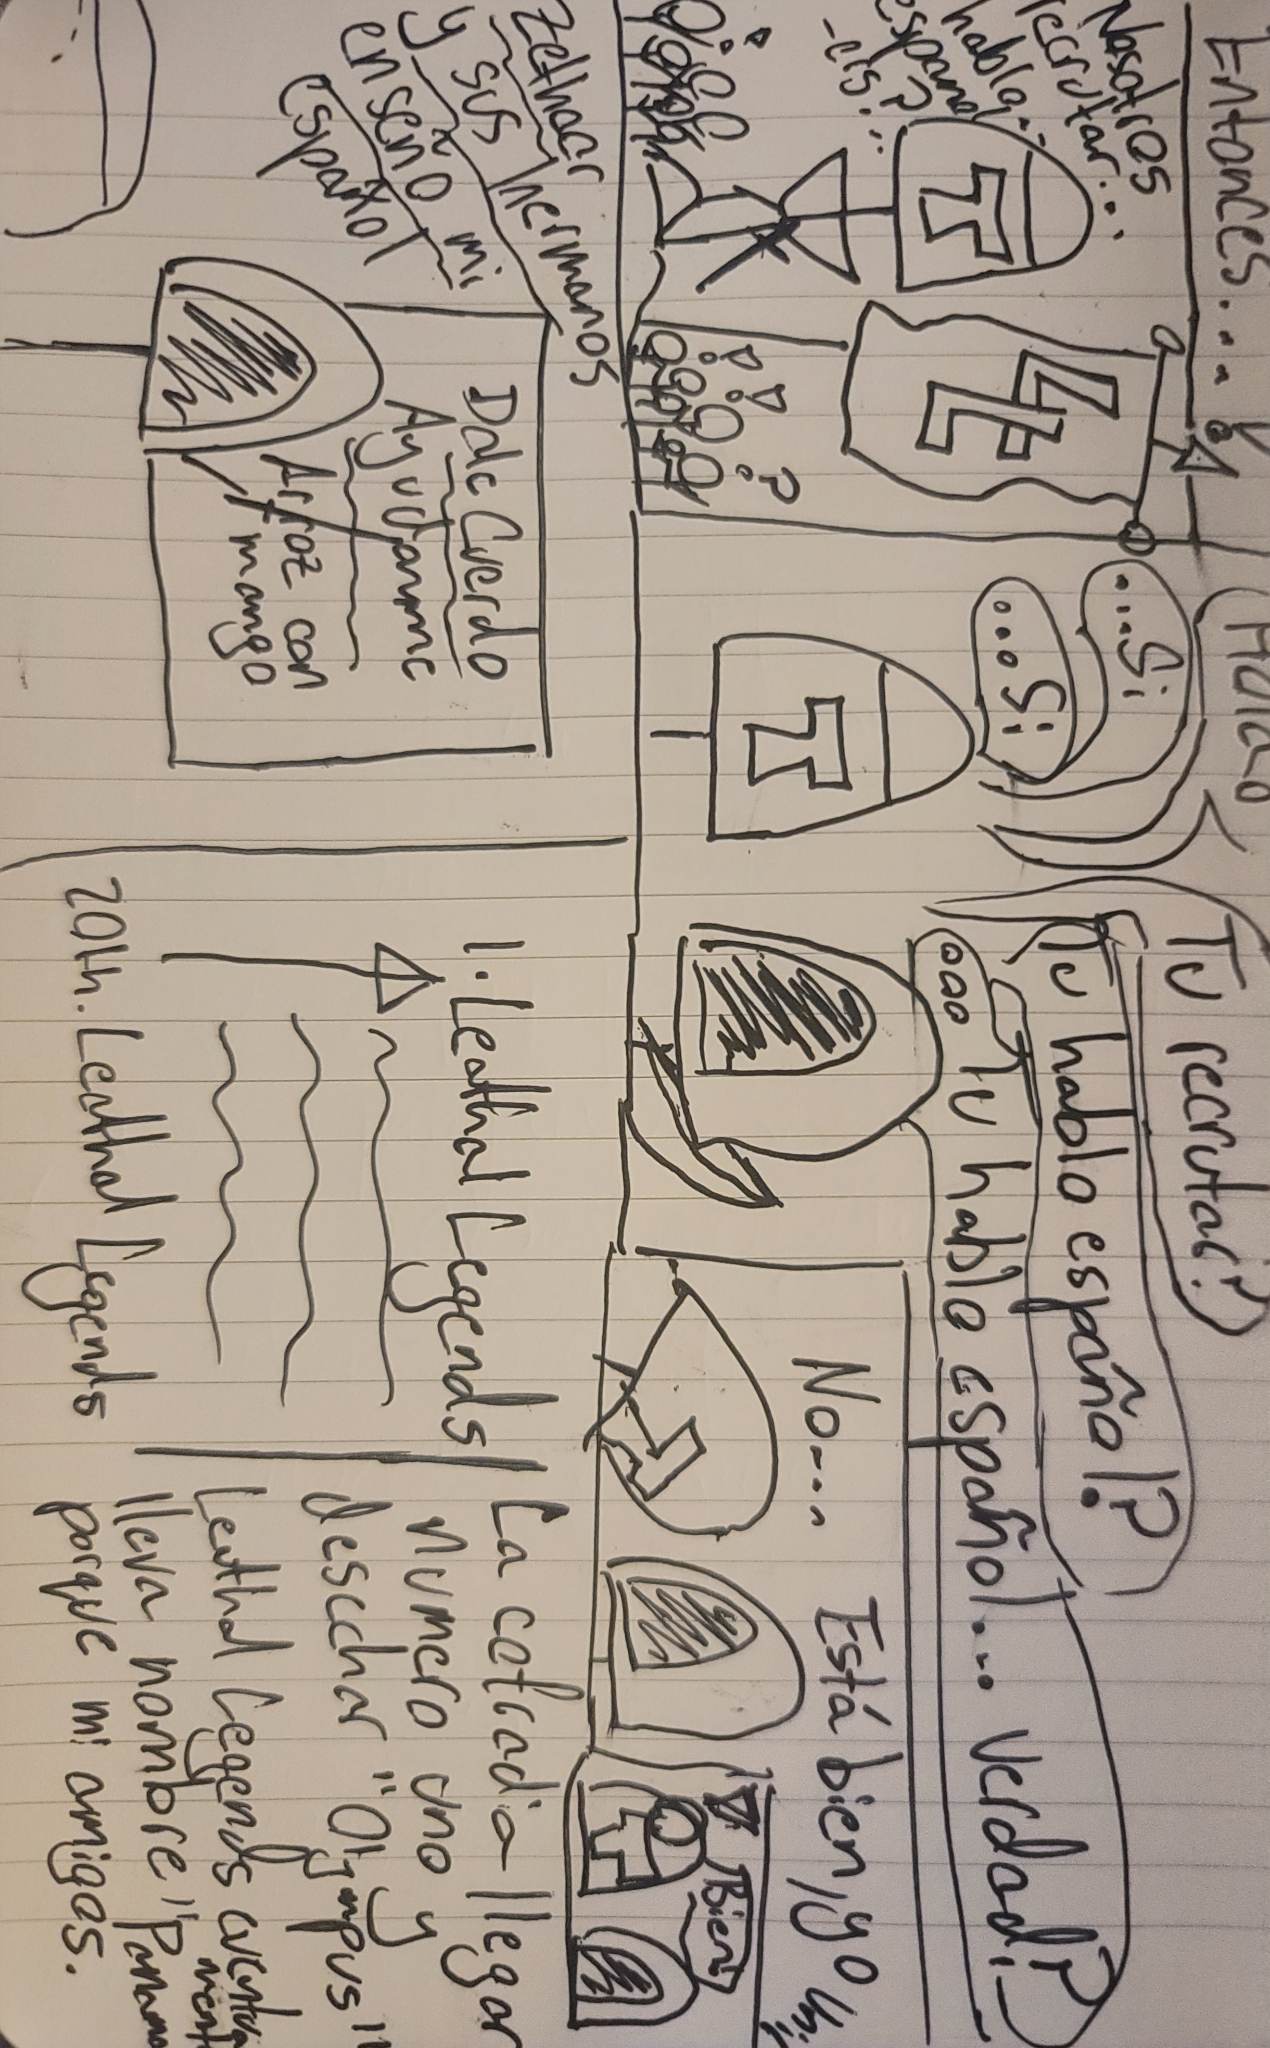 Entonces....
Nosotros
recrutar....
hablo...
español?
¡Hola!
...Si
...Si
Tu recrutar?
Tu hablo español?
...Tu hablo español... verdad?
No...
Está bien, yo
Bien
Zethacr
y sus hermanos
enseño mi
español
Dale Cuerdo
Ayudanme
Arroz con
mango
1. Leathal Legends
20th. Leathal Legends
La cofradia llegar
numero uno y
descchar "Olympus"
Leathal Legends
lleva nombre "Panama
porque mi amigos.